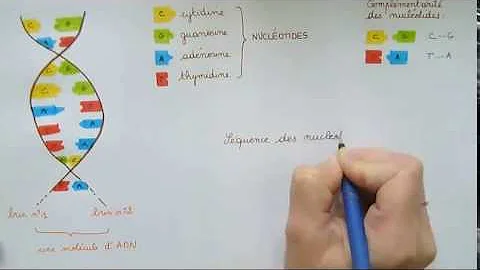 C cytidine
G guanosine
A adénosine
T thymidine
NUCLÉOTIDES
Complémentarité
des nucléotides :
C G C--G
T A T--A
Séquence des nucléo
brin n°1 brin n°2
une molécule d'ADN